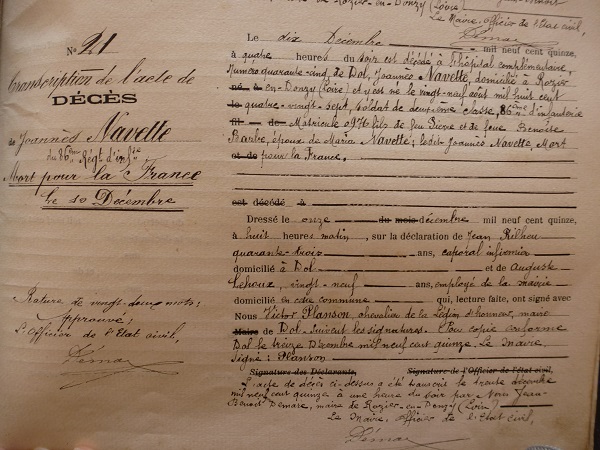 de Rozier-en-Donzy (Loire)
Le Maire, officier de l'Etat civil,
Démare
N° 21
transcription de l'acte de
DÉCÈS
de Joannès Navette
du 86ème Régt d'infie
Mort pour la France
Le 10 Décembre
Rature de vingt-deux mots:
Approuvé:
L'Officier de l'Etat civil,
Démare
Le dix Décembre mil neuf cent quinze,
à quatre heures du soir est décédé à l'hôpital complémentaire
Numéro quarante-cinq de Dol, Joannès Navette, domicilié à Rozier
né à en-Donzy (Loire) et y est né le vingt-neuf août mil huit cent
le quatre-vingt sept, soldat de deuxième classe, 86ème d'infanterie
fil de Matricule 0976 fils de feu Pierre et de feue Benoite
Barbe, époux de Maria Navette; ledit Joannès Navette Mort
et de pour la France.
est décédé à
Dressé le onze du mois décembre mil neuf cent quinze,
à huit heures matin, sur la déclaration de Jean
quarante-trois ans, caporal infirmier
domicilié à Dol et de Auguste
Lehoux, vingt-neuf ans, employé de la mairie
domicilié en cette commune qui, lecture faite, ont signé avec
Nous Victor Planson, chevalier de la Légion d'honneur, maire
Maire de Dol. Suivent les signatures. Pour copie conforme
Dol le treize Décembre mil neuf cent quinze. Le Maire
Signé: Planson
Signature des Déclarants, Signature de l'Officier de l'État civil,
L'acte de décès ci-dessus a été transcrit le trente décembre
mil neuf cent quinze à une heure du soir par Nous Jean-
Benoit Démare, maire de Rozier-en-Donzy (Loire)
Le Maire, officier de l'Etat civil,
Démare